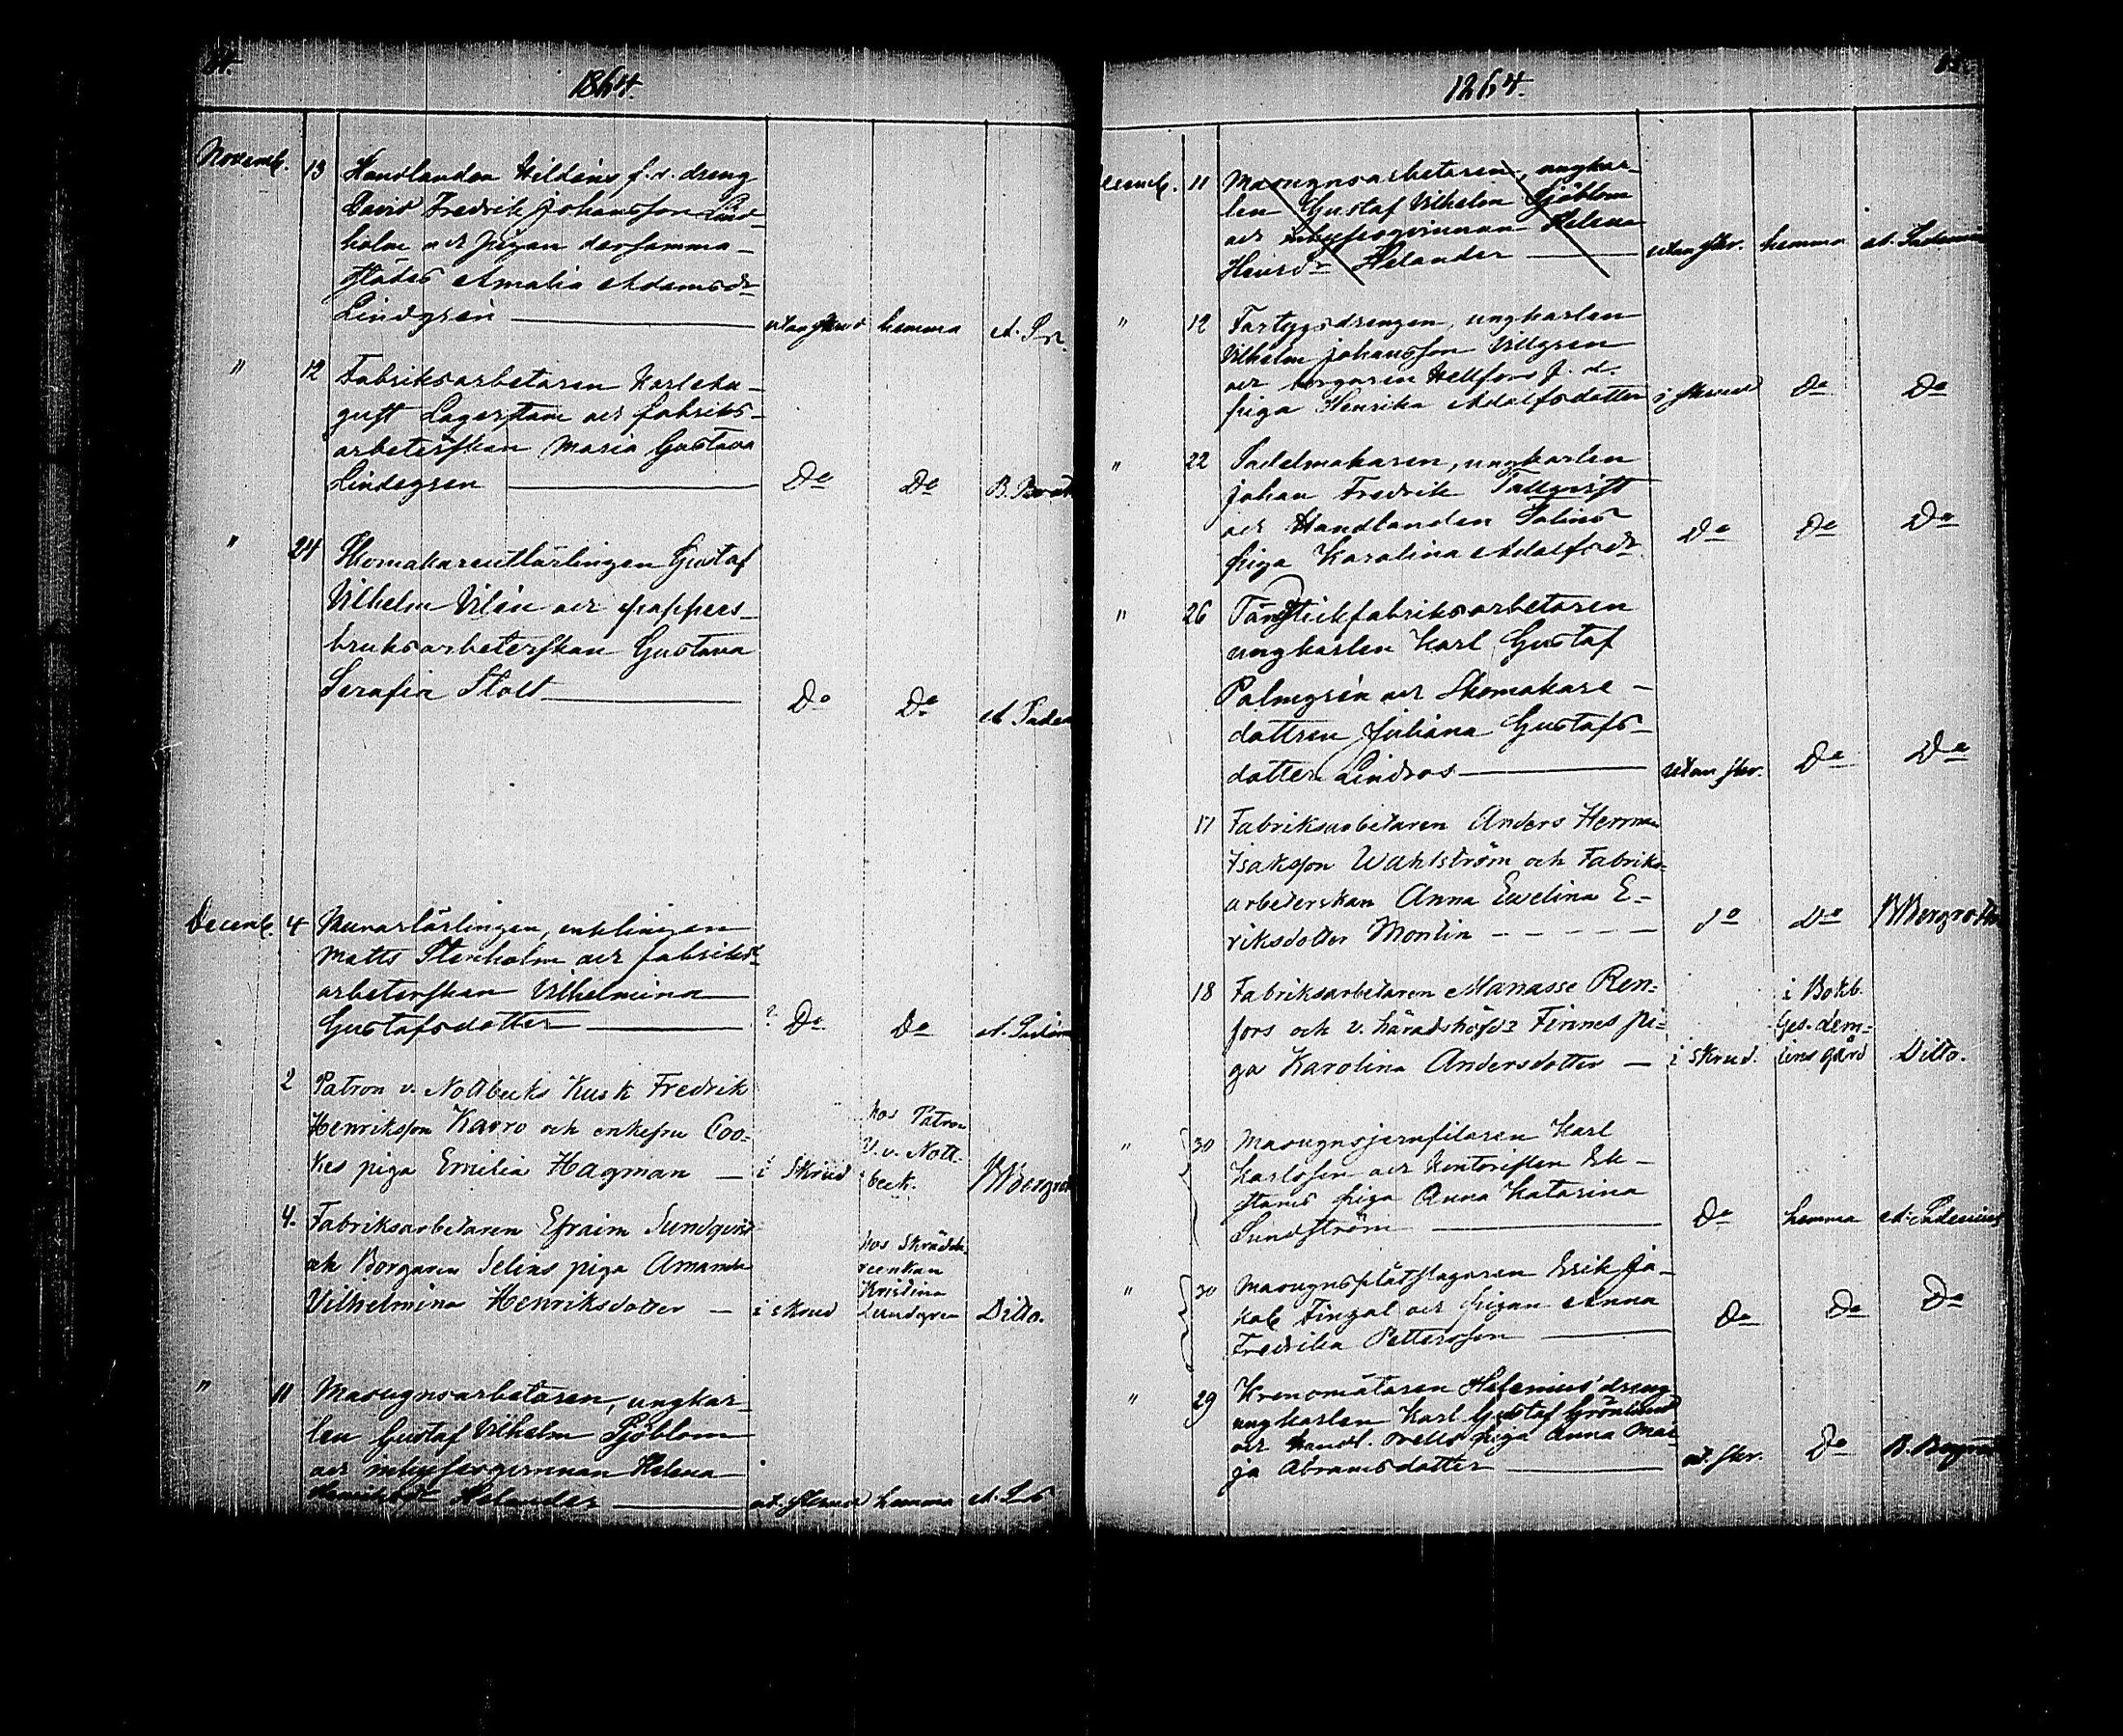 84.
1864.
Novemb. 13 Handlanden Hildéns f. d. dreng
David Fredrik Johansson Lind-
holm och pigan dersamma-
städes Amalia Adamsdr
Lindgrén utan skrud hemma A. Sn.
" 12 Fabriksarbetaren Karl Au-
gust Lagerstam och fabriks-
arbeterskan Maria Gustava
Lindegren Do Do
" 24 Skomakareutlärlingen Gustaf
Vilhelm Vilén och pappers-
bruksarbeterskan Gustava
Serafia Stolt Do Do A. Saden
Decemb. 4 Murarlärlingen, enklingen
Matts Stenholm och fabriks-
arbeterskan Vilhelmina
Gustafsdotter ? Do Do
2 Patron v. Nottbecks Kusk Fredrik
Henriksson Karro och enkefru Coo-
kes piga Emilia Hagman — i Skrud hos Patron
V. v. Nott-
beck. Bergroth
4. Fabriksarbetaren Efraim Sundqvist
och Borgaren Seléns piga Amanda
Vilhelmina Henriksdotter — i skrud hos Skrädda-
reenkan
Kristina
Lundgren Ditto.
" 11 Masugnsarbetaren, ungkar-
len Gustaf Vilhelm Sjöblom
och inhysesqvinnan Helena
Henriksdr Helander ut. skrud hemma
1864.
Decemb. 11 Masugnsarbetaren, ungkar-
len Gustaf Vilhelm Sjöblom
och inhysesqvinnan Helena
Henrsdr Helander utan skr. hemma A. Sadenius
" 12 Fartygsdrengen, ungkarlen
Vilhelm Johansson Villgren
och borgaren Hellfors f. d.
piga Henrika Adolfsdotter i skrud Do Do
" 22 Sadelmakaren, ungkarlen
Johan Fredrik Tallqvist
och Handlanden Salins
piga Karolina Adolfsdr Do Do Do
" 26 Tändstickfabriksarbetaren
ungkarlen Karl Gustaf
Palmgrén och Skomakare-
dottren Juliana Gustafs-
dotter Lindros utan skr. Do Do
17 Fabriksarbetaren Anders Herman
Isaksson Wahlström och Fabriks-
arbeterskan Anna Ewelina E-
riksdotter Montin - - - - - do Do Bergroth
18 Fabriksarbetaren Manasse Ren-
fors och v. häradshöfd. Finnes pi-
ga Karolina Andersdotter — i skrud. i Bokb.
Ges. dem-
lins gård Ditto.
" 30 Masugnsjernfilaren Karl
Karlsson och Kontoristen Ek-
stams piga Anna Katarina
Sundström Do hemma A. Sadenius
" 30 Masugnsplåtslagaren Erik Ja-
kob Fingal och pigan Anna
Fredrika Pettersson Do Do Do
" 29 Kronomätaren Helenius' dreng
ungkarlen Karl Gustaf Grönlund
och Handl. piga Anna Mar-
ja Abramsdotter ut. skr. Do